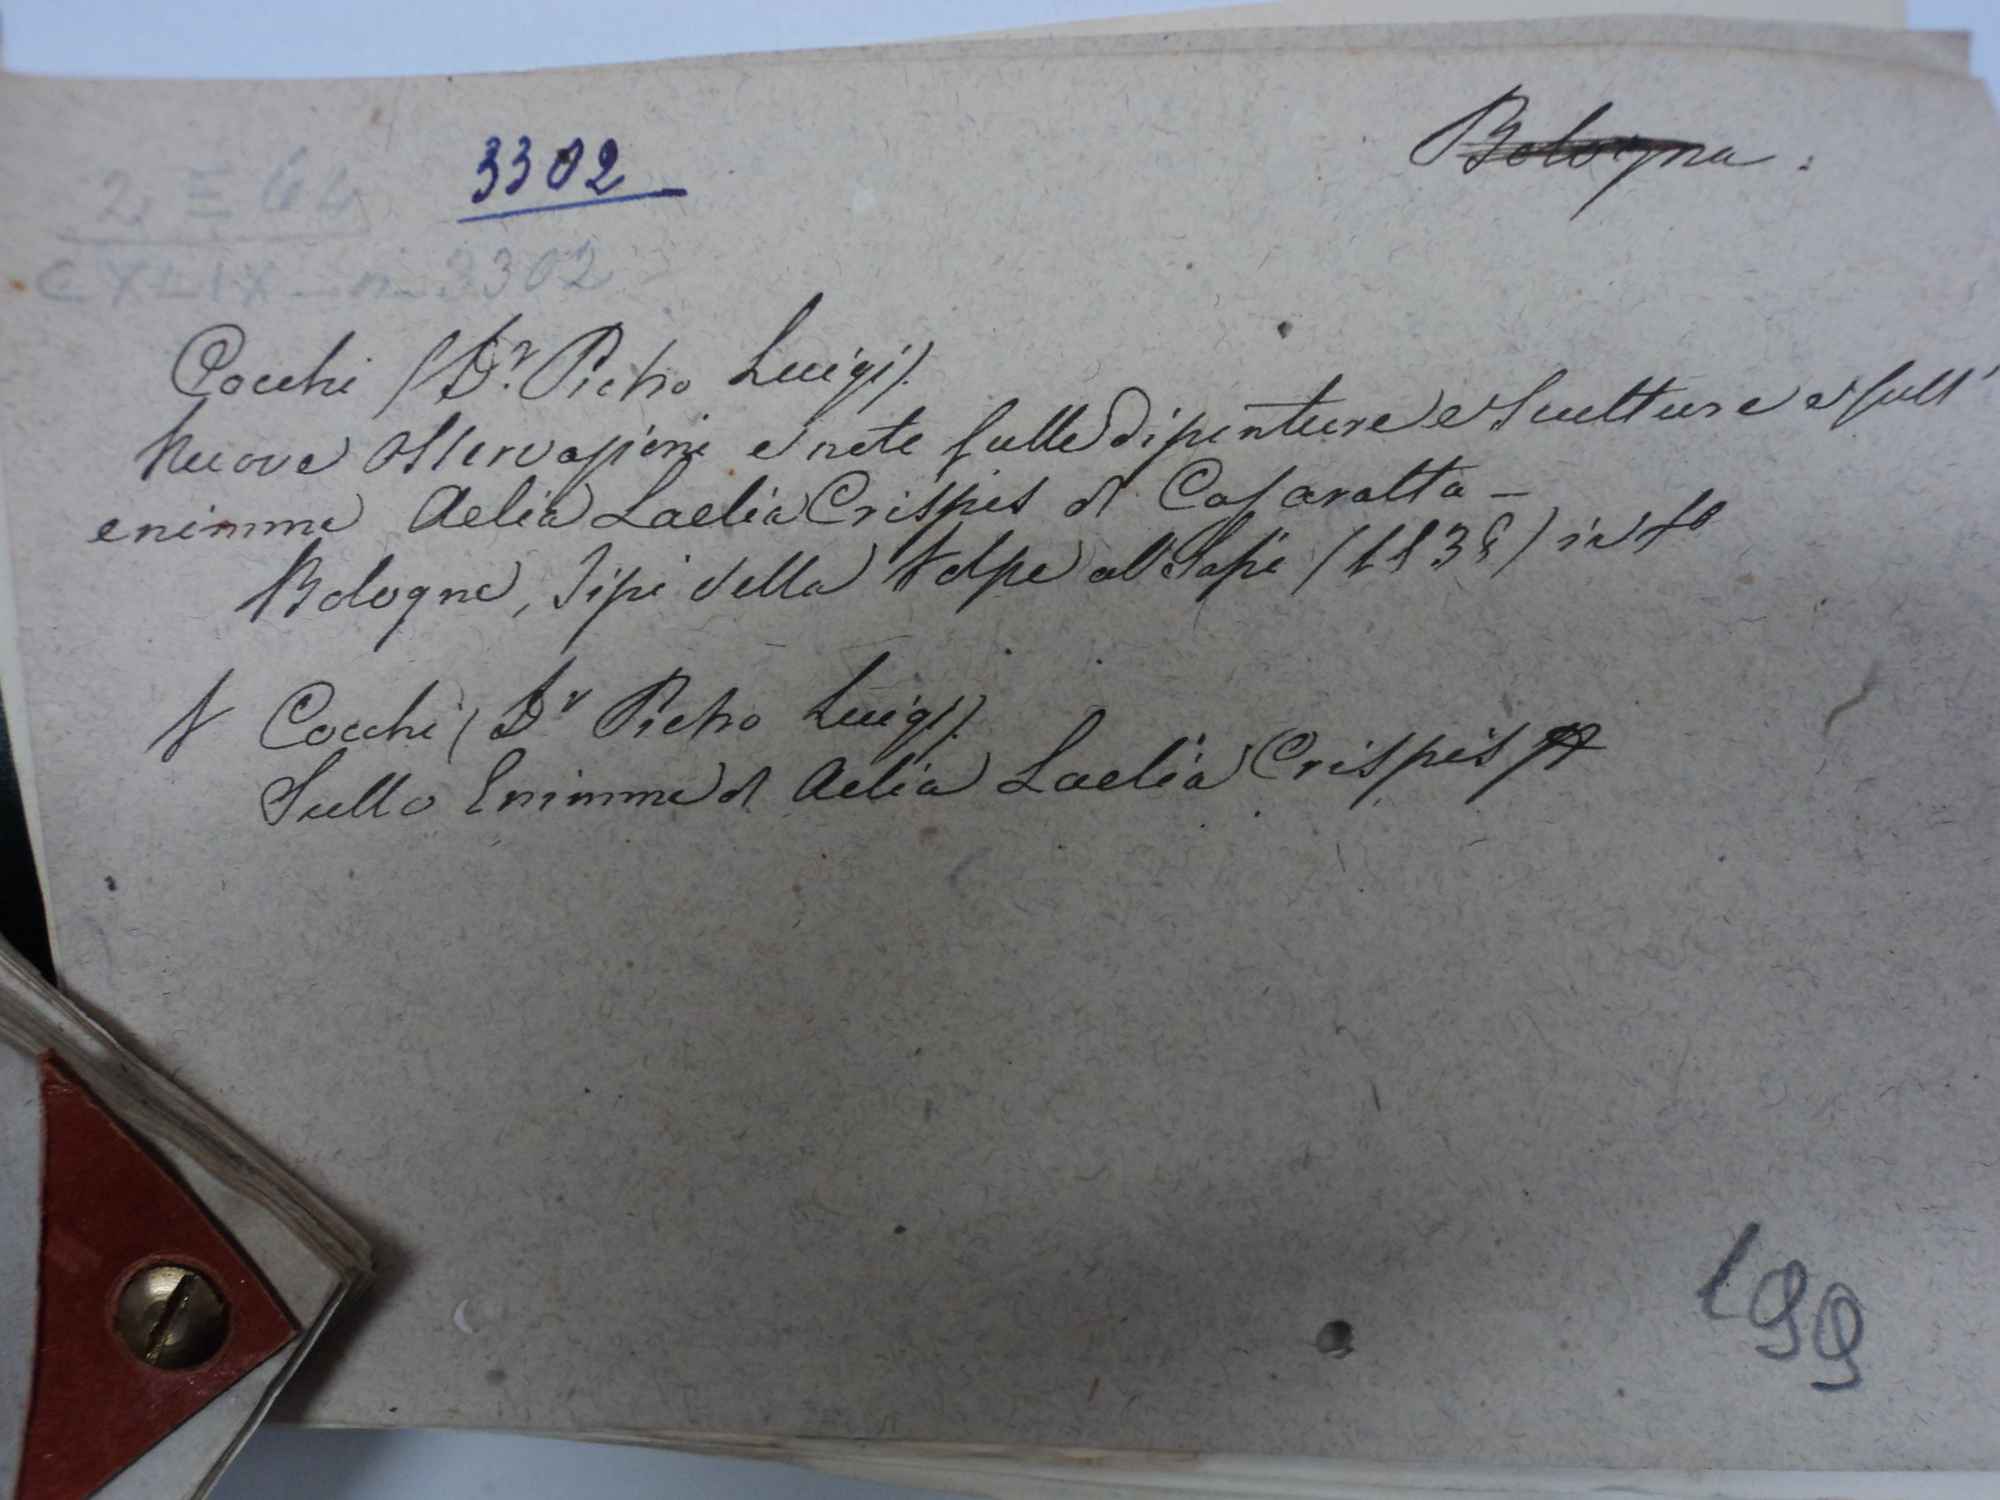 Bologna.
3302
2 E 64
CXLIX n. 3302
Cocchi (Dr. Pietro Luigi).
Nuove osservazioni e note sulle dipinture e sculture e sull'
enimma Aelia Laelia Crispis di Casaralta -
Bologna, Tipi della Volpe al Sassi (1838) in fo
V Cocchi (Dr Pietro Luigi).
Sullo Enimma di Aelia Laelia Crispis
199